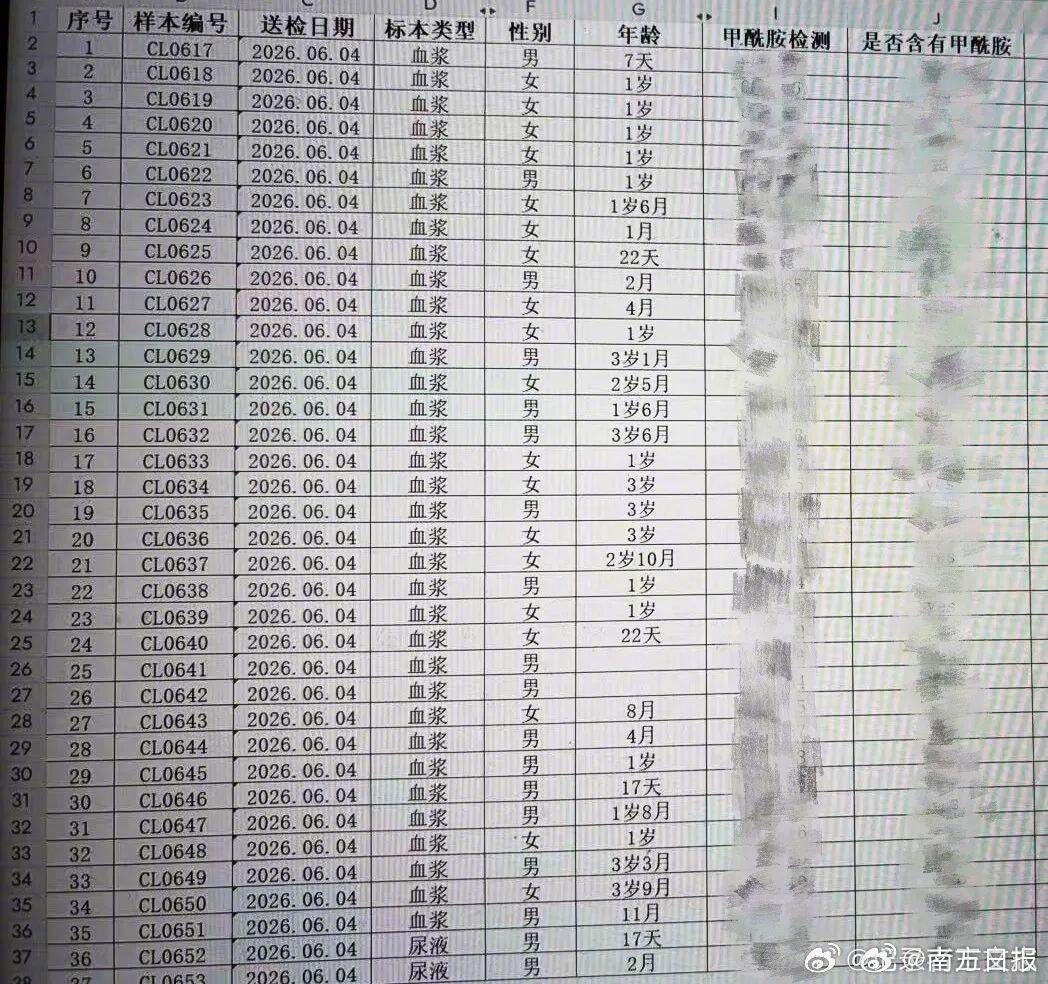 D F G I J
1 序号 样本编号 送检日期 标本类型 性别 年龄 甲酰胺检测 是否含有甲酰胺
2 1 CL0617 2026.06.04 血浆 男 7天
3 2 CL0618 2026.06.04 血浆 女 1岁
4 3 CL0619 2026.06.04 血浆 女 1岁
5 4 CL0620 2026.06.04 血浆 女 1岁
6 5 CL0621 2026.06.04 血浆 女 1岁
7 6 CL0622 2026.06.04 血浆 男 1岁
8 7 CL0623 2026.06.04 血浆 女 1岁6月
9 8 CL0624 2026.06.04 血浆 女 1月
10 9 CL0625 2026.06.04 血浆 女 22天
11 10 CL0626 2026.06.04 血浆 男 2月
12 11 CL0627 2026.06.04 血浆 女 4月
13 12 CL0628 2026.06.04 血浆 女 1岁
14 13 CL0629 2026.06.04 血浆 男 3岁1月
15 14 CL0630 2026.06.04 血浆 女 2岁5月
16 15 CL0631 2026.06.04 血浆 男 1岁6月
17 16 CL0632 2026.06.04 血浆 男 3岁6月
18 17 CL0633 2026.06.04 血浆 女 1岁
19 18 CL0634 2026.06.04 血浆 女 3岁
20 19 CL0635 2026.06.04 血浆 男 3岁
21 20 CL0636 2026.06.04 血浆 女 3岁
22 21 CL0637 2026.06.04 血浆 女 2岁10月
23 22 CL0638 2026.06.04 血浆 男 1岁
24 23 CL0639 2026.06.04 血浆 女 1岁
25 24 CL0640 2026.06.04 血浆 女 22天
26 25 CL0641 2026.06.04 血浆 男
27 26 CL0642 2026.06.04 血浆 男
28 27 CL0643 2026.06.04 血浆 女 8月
29 28 CL0644 2026.06.04 血浆 男 4月
30 29 CL0645 2026.06.04 血浆 男 1岁
31 30 CL0646 2026.06.04 血浆 男 17天
32 31 CL0647 2026.06.04 血浆 男 1岁8月
33 32 CL0648 2026.06.04 血浆 女 1岁
34 33 CL0649 2026.06.04 血浆 男 3岁3月
35 34 CL0650 2026.06.04 血浆 女 3岁9月
36 35 CL0651 2026.06.04 血浆 男 11月
37 36 CL0652 2026.06.04 尿液 男 17天
38 37 CL0653 2026.06.04 尿液 男 2月
南方日报